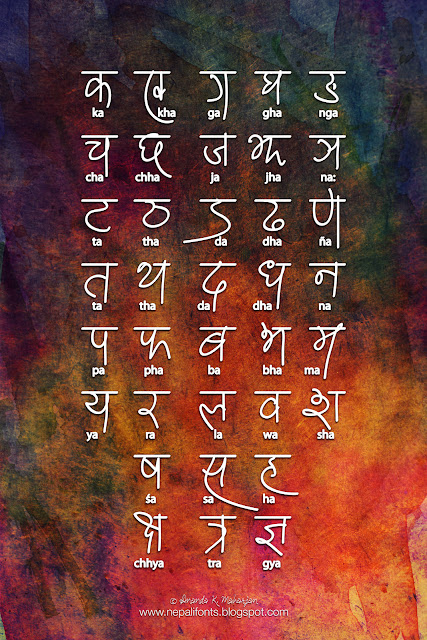 क ख ग घ ङ
ka kha ga gha nga
च छ ज झ ञ
cha chha ja jha na:
ट ठ ड ढ ण
ta tha da dha ña
त थ द ध न
ta tha da dha na
प फ ब भ म
pa pha ba bha ma
य र ल व श
ya ra la wa sha
ष स ह
śa sa ha
क्ष त्र ज्ञ
chhya tra gya
© Ananda K. Maharjan
www.nepalifonts.blogspot.com